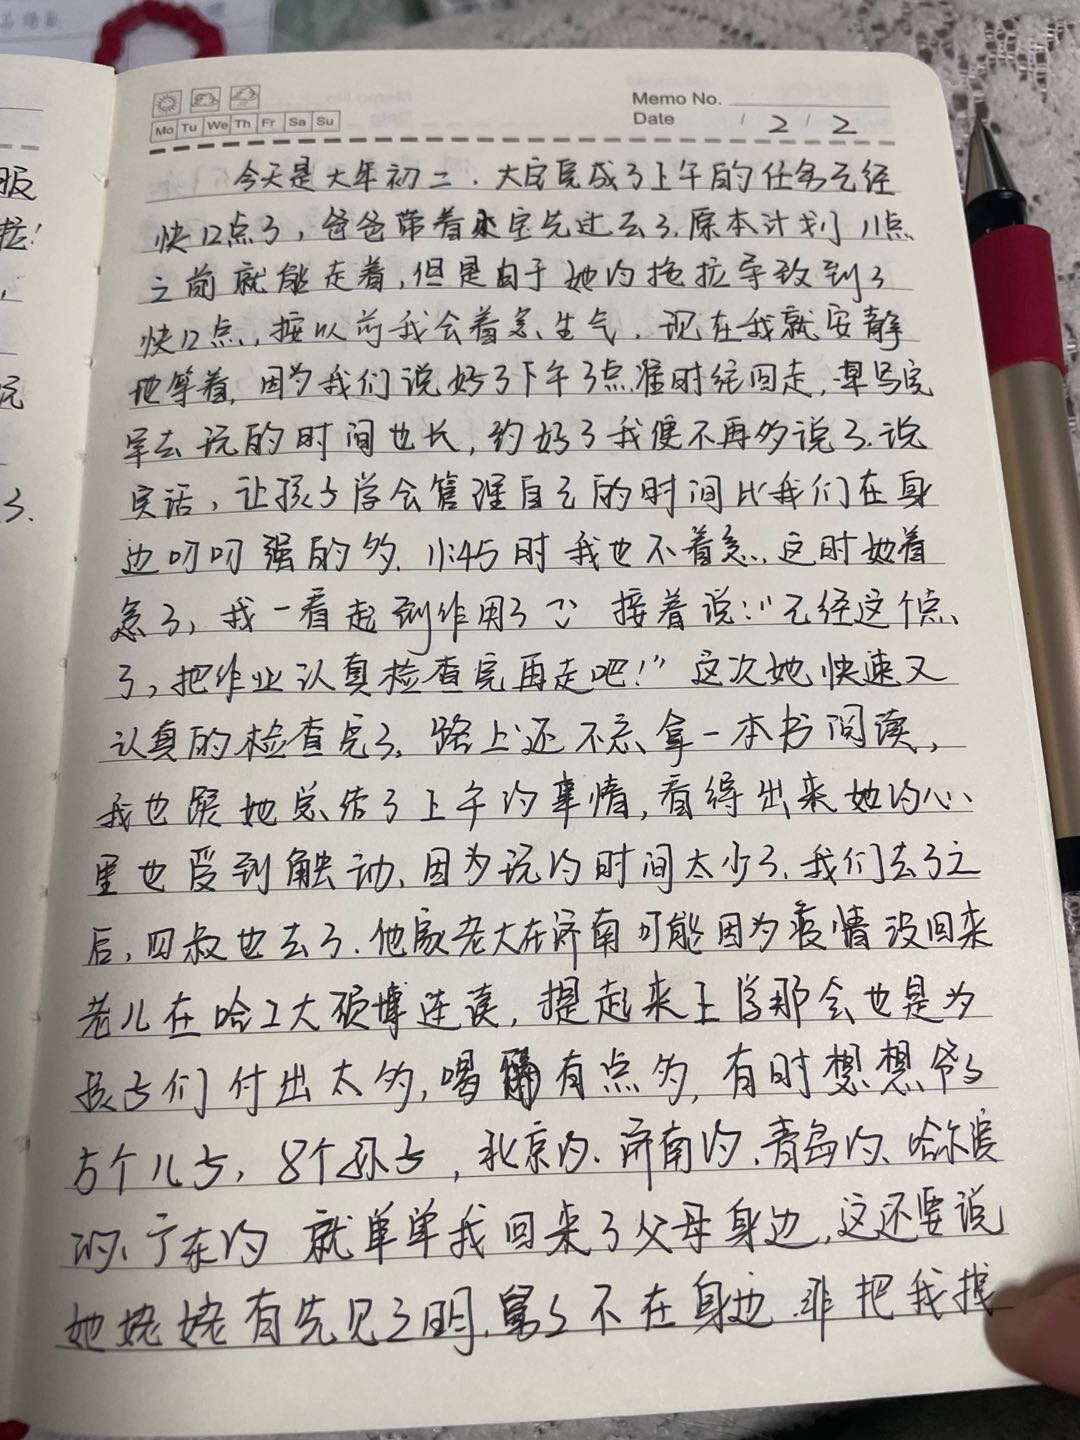 Memo No.
Mo Tu We Th Fr Sa Su
Date / 2 / 2
今天是大年初二.大宝完成了上午的任务已经
快12点了,爸爸带着小宝先过去了.原本计划11点
之前就能走着,但是由于她的拖拉导致到了
快12点,按以前我会着急、生气.现在我就安静
地等着,因为我们说好了下午3点准时往回走,早写完
早去玩的时间也长,约好了我便不再多说了.说
实话,让孩子学会管理自己的时间比我们在身
边叨叨强的多.11:45时我也不着急.这时她着
急了,我一看起到作用了 接着说:"已经这个点
了,把作业认真检查完再走吧!"这次她快速又
认真的检查完了.路上还不忘拿一本书阅读,
我也跟她总结了上午的事情,看得出来她的心
里也受到触动,因为玩的时间太少了.我们去了之
后,四叔也去了.他家老大在济南可能因为疫情没回来
老儿在哈工大硕博连读,提起来上学那会也是为
孩子们付出太多,喝 有点多,有时想想爷爷
5个儿子,8个孙子,北京的、济南的、青岛的、哈尔滨
的、广东的 就单单我回来了父母身边,这还要说
她姥姥有先见之明,舅舅不在身边 非把我
服
啦!
玩
了.